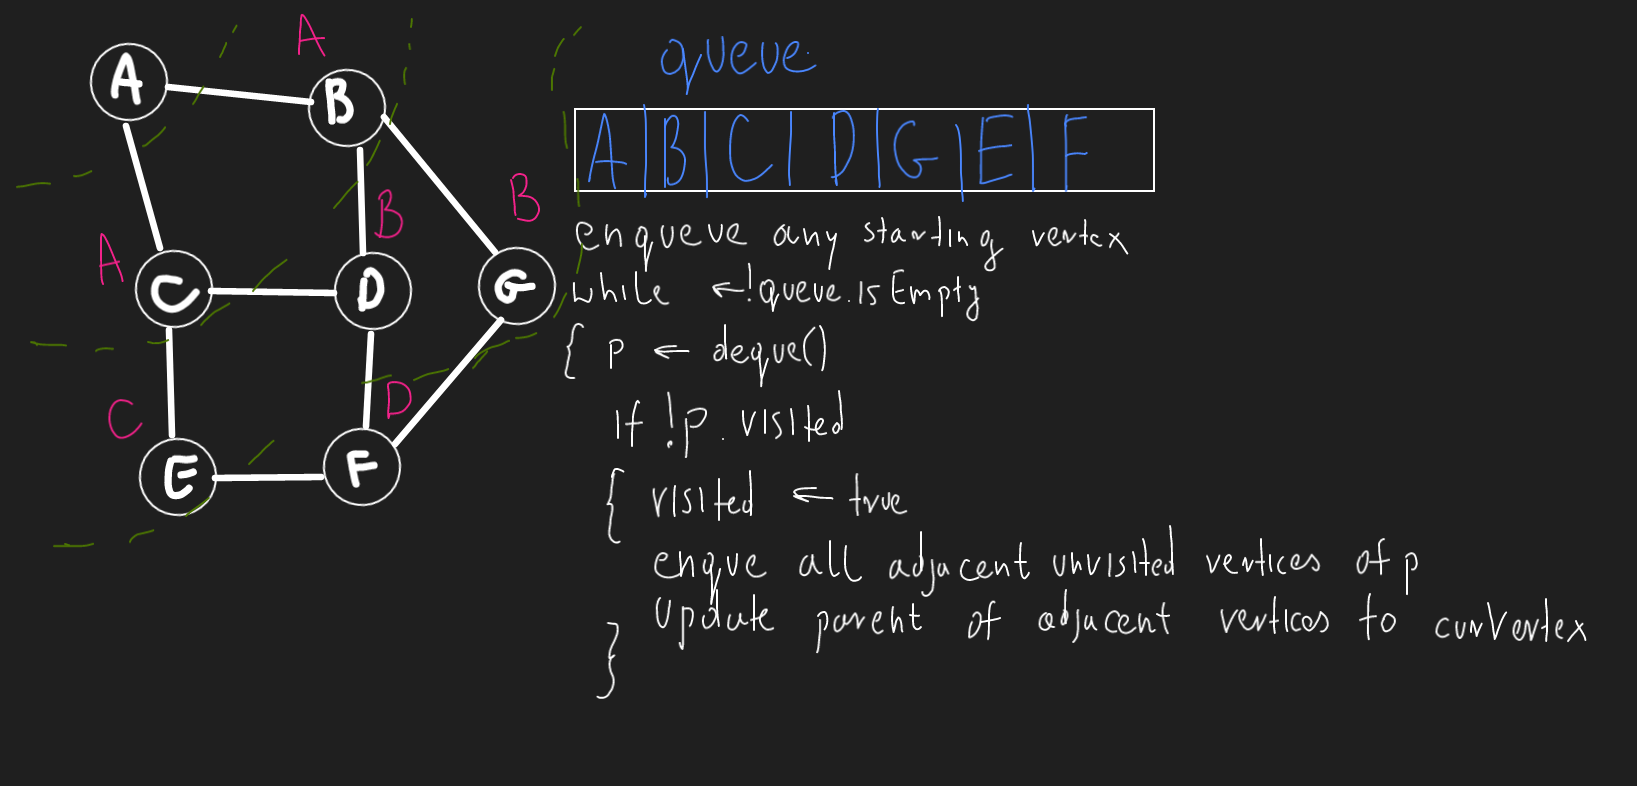 A
A
B
queue
A B C D G E F
B
B
A
C
D
G
enqueue any starting vertex
while ←!queue.isEmpty
{ p ← deque()
C
D
E
F
if !p.visited
{ visited ← true
enque all adjacent unvisited vertices of p
update parent of adjacent vertices to curVertex
}